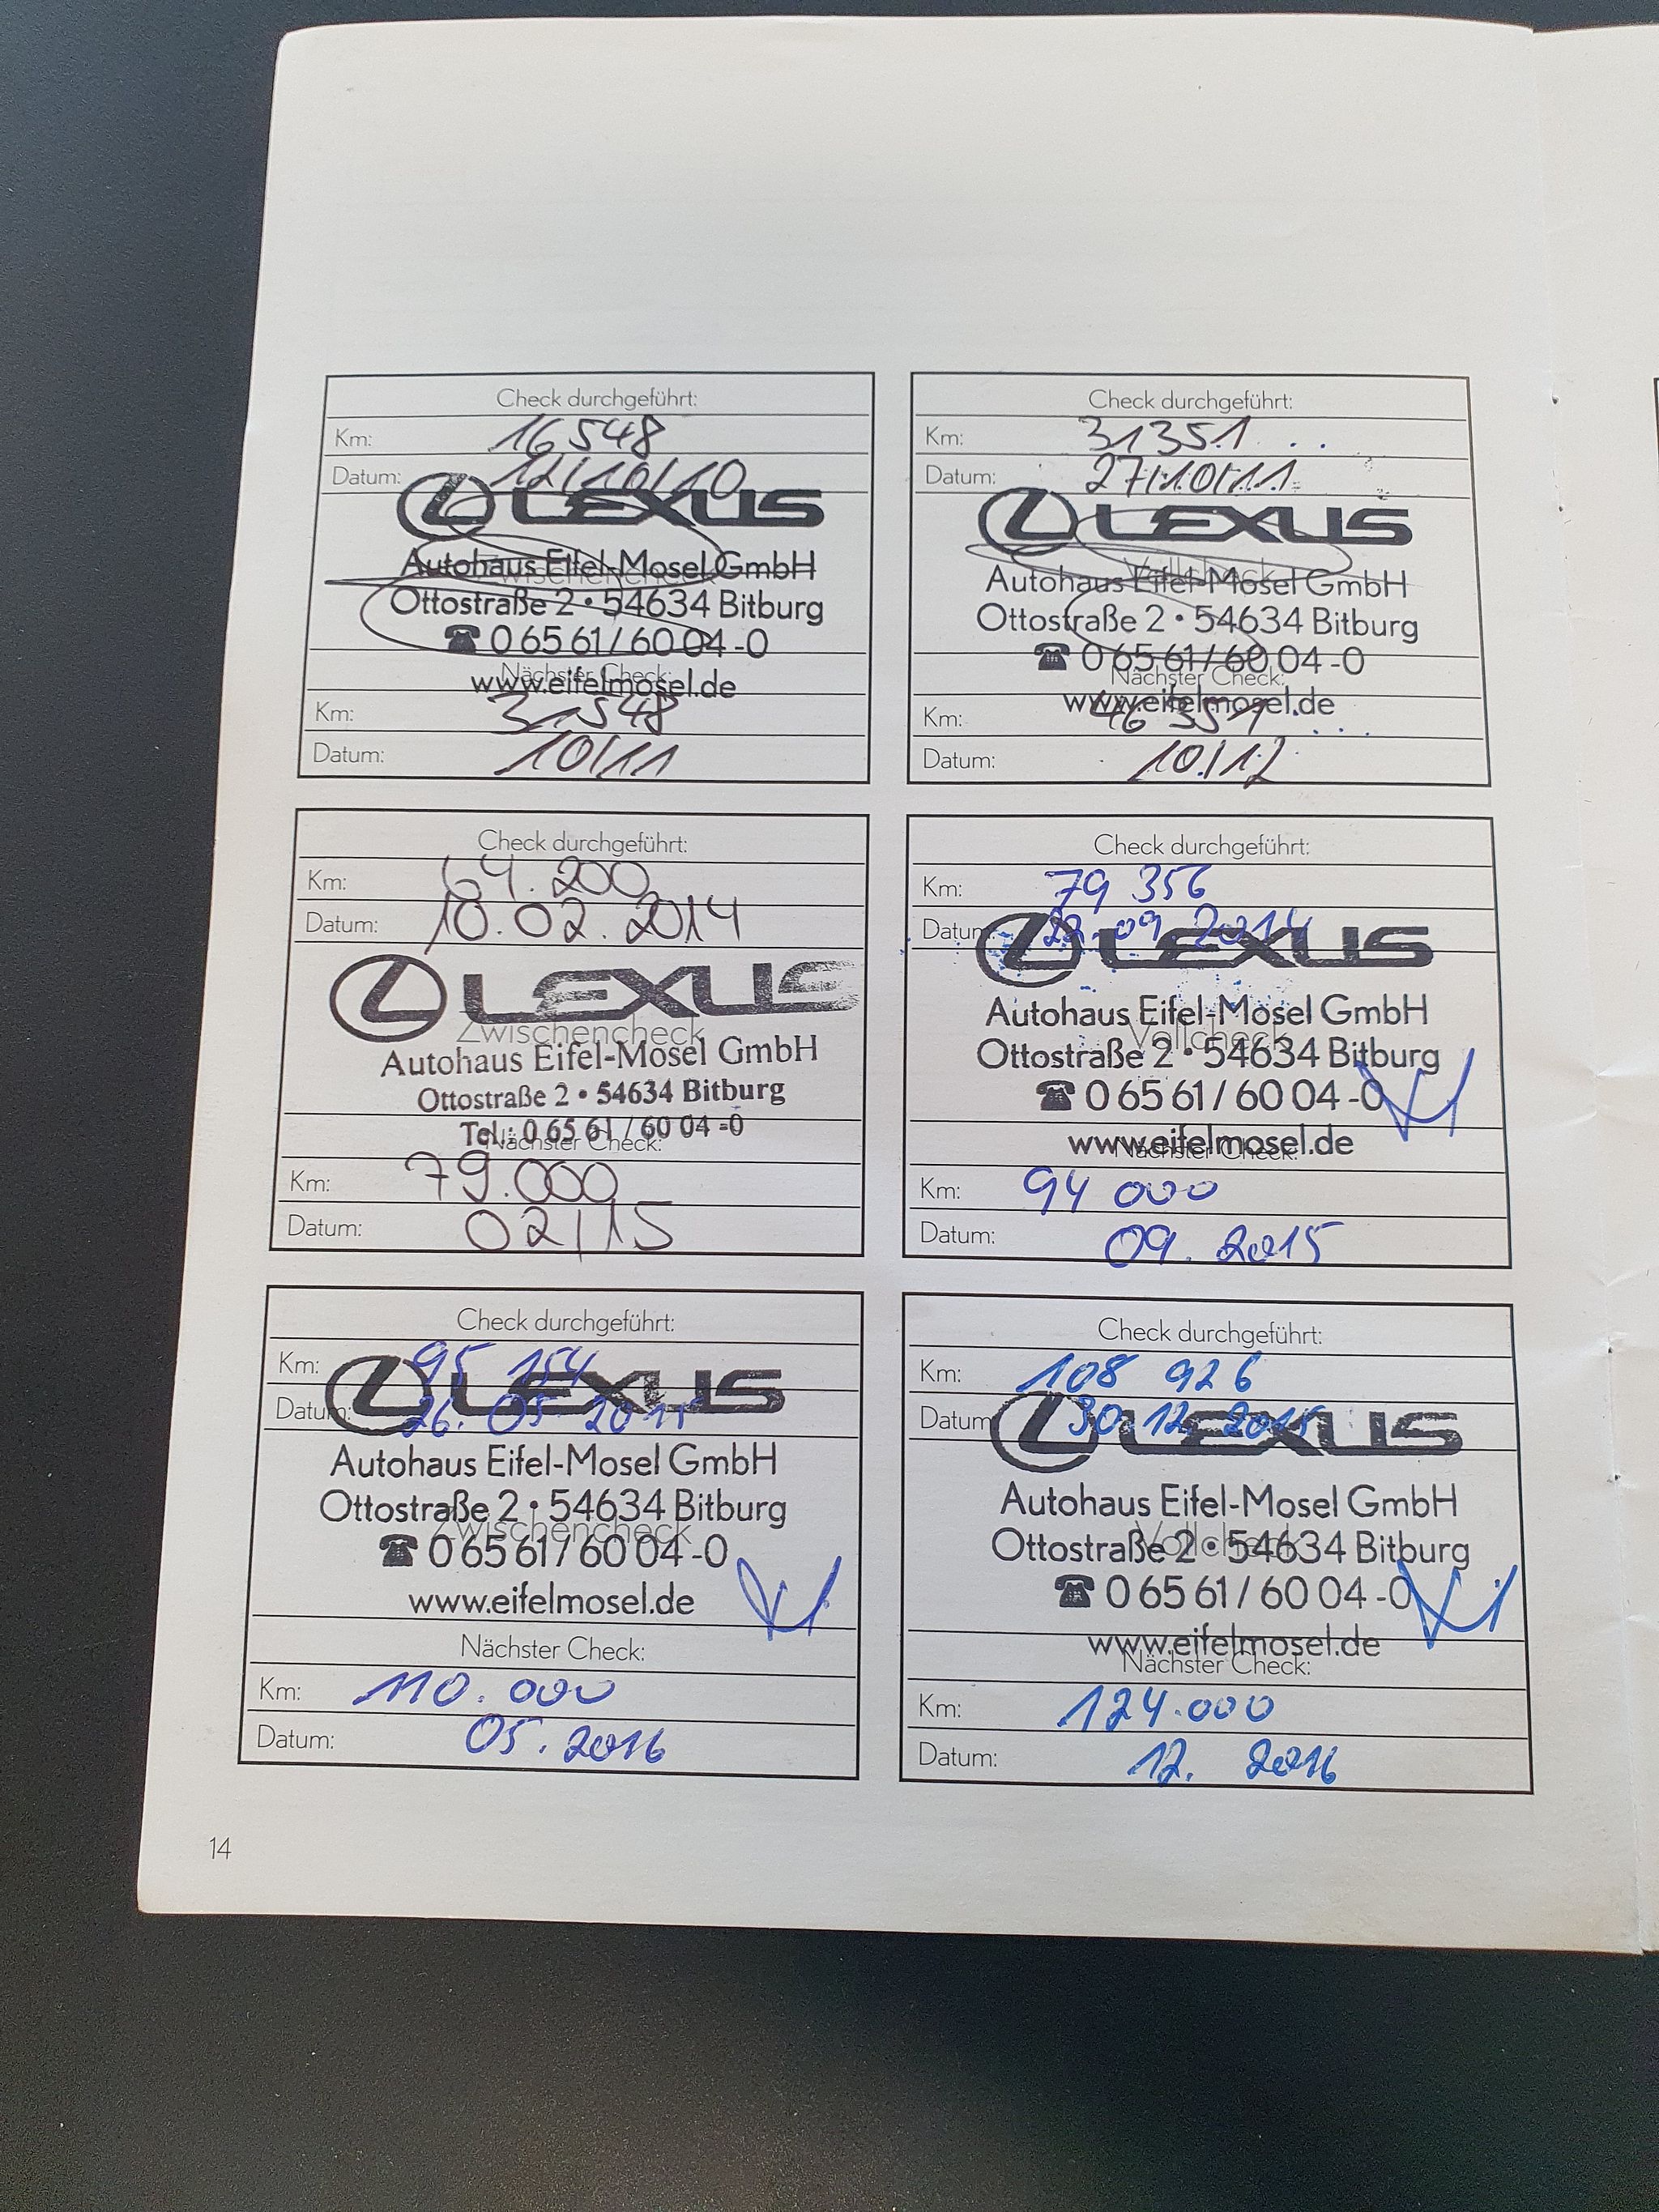 Check durchgeführt:
Km: 16 548
Datum: 12/10/10
LEXUS
Zwischencheck
Autohaus Eifel-Mosel GmbH
Ottostraße 2 • 54634 Bitburg
☎ 0 65 61 / 60 04 -0
Nächster Check:
www.eifelmosel.de
Km: 31 548
Datum: 10/11
Check durchgeführt:
Km: 31351
Datum: 27/10/11
LEXUS
Vollcheck
Autohaus Eifel-Mosel GmbH
Ottostraße 2 • 54634 Bitburg
☎ 0 65 61 / 60 04 -0
Nächster Check:
www.eifelmosel.de
Km: 46 351
Datum: 10/12
Check durchgeführt:
Km: 64.200
Datum: 10.02.2014
LEXUS
Zwischencheck
Autohaus Eifel-Mosel GmbH
Ottostraße 2 • 54634 Bitburg
Tel.: 0 65 61 / 60 04 -0
Nächster Check:
Km: 79.000
Datum: 02/15
Check durchgeführt:
Km: 79 356
Datum: 22.09.2014
LEXUS
Autohaus Eifel-Mosel GmbH
Vollcheck
Ottostraße 2 • 54634 Bitburg
☎ 0 65 61 / 60 04 -0
www.eifelmosel.de
Nächster Check:
Km: 94 000
Datum: 09. 2015
Check durchgeführt:
Km: 95 154
Datum: 26. 05 2015
LEXUS
Autohaus Eifel-Mosel GmbH
Ottostraße 2 • 54634 Bitburg
Zwischencheck
☎ 0 65 61 / 60 04 -0
www.eifelmosel.de
Nächster Check:
Km: 110. 000
Datum: 05. 2016
Check durchgeführt:
Km: 108 926
Datum: 30. 12. 2015
LEXUS
Autohaus Eifel-Mosel GmbH
Vollcheck
Ottostraße 2 • 54634 Bitburg
☎ 0 65 61 / 60 04 -0
www.eifelmosel.de
Nächster Check:
Km: 124.000
Datum: 12. 2016
14